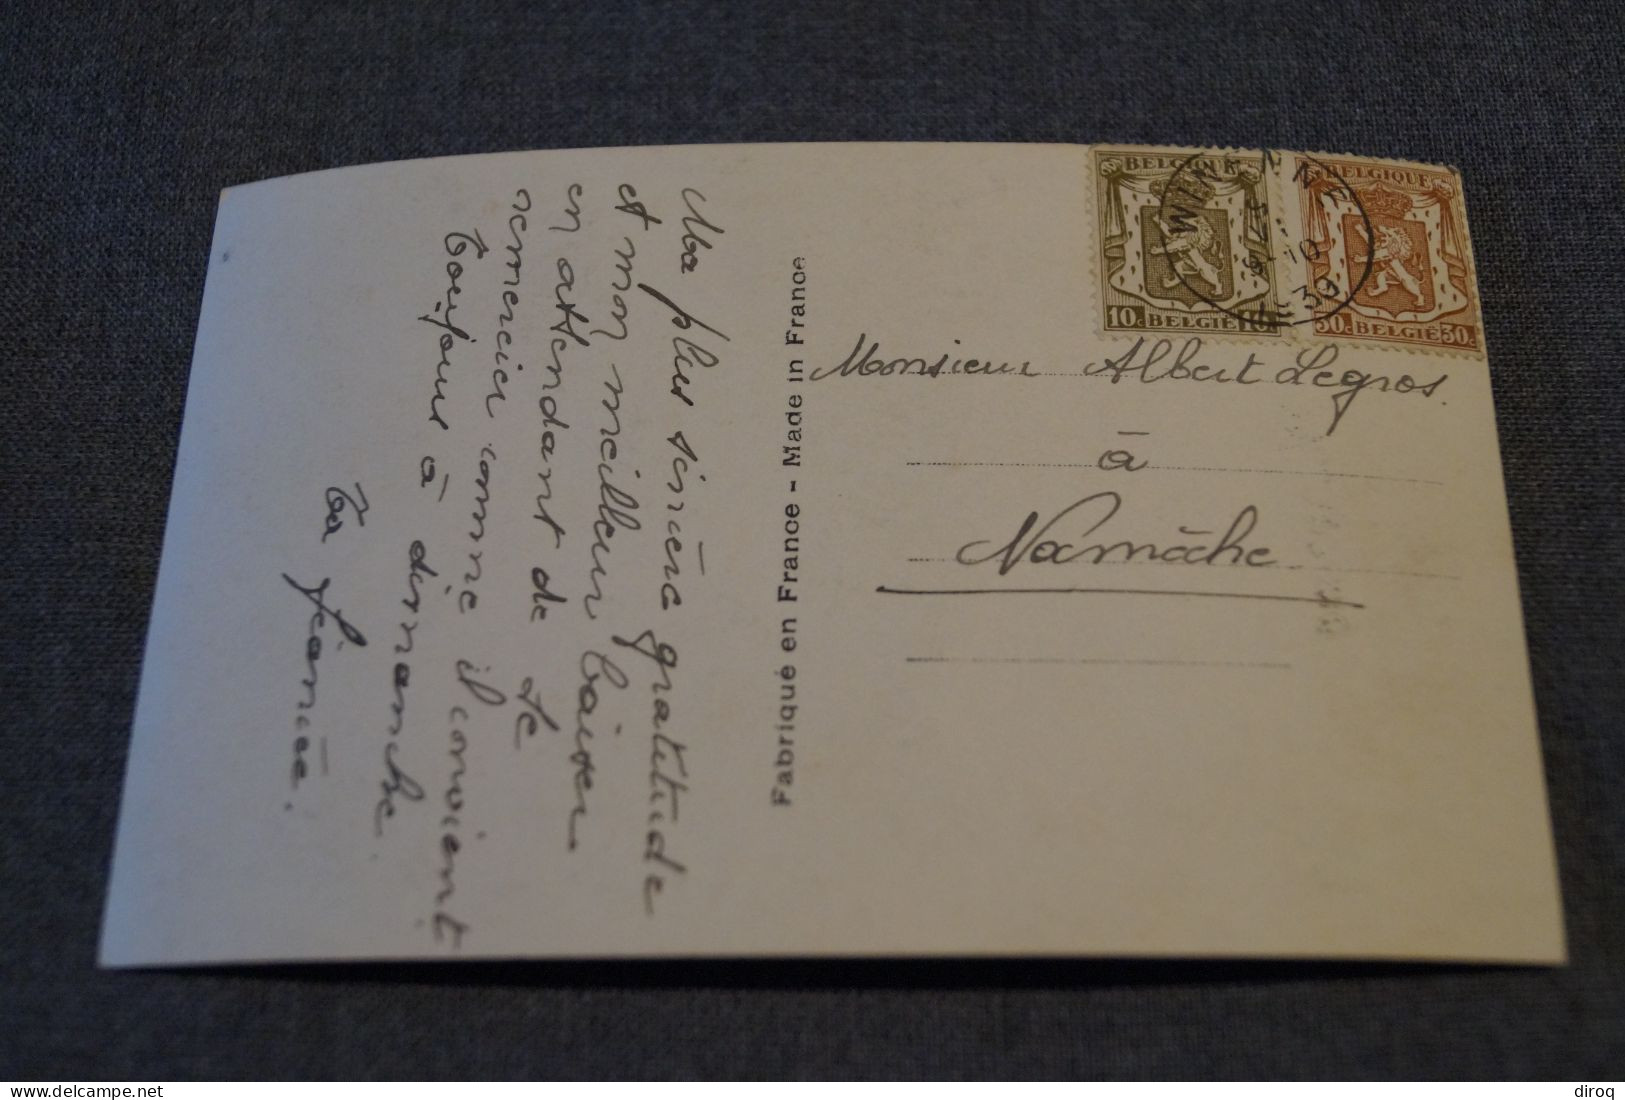 Ma plus sincère gratitude
et mon meilleur baiser
en attendant de te
remercier comme il convient
Toujours à dimanche
Ta Jeannée.
Fabriqué en France - Made in France
BELGIQUE
10c BELGIË 10c
BELGIQUE
30c BELGIË 30c
10
39
Monsieur Albert Legros.
à
Namèche
diroq